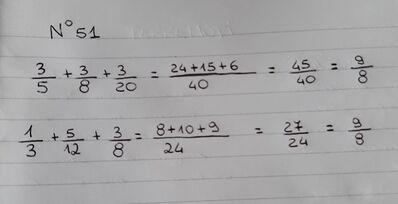 N° 51
3/5 + 3/8 + 3/20 = 24+15+6/40 = 45/40 = 9/8
1/3 + 5/12 + 3/8 = 8+10+9/24 = 27/24 = 9/8